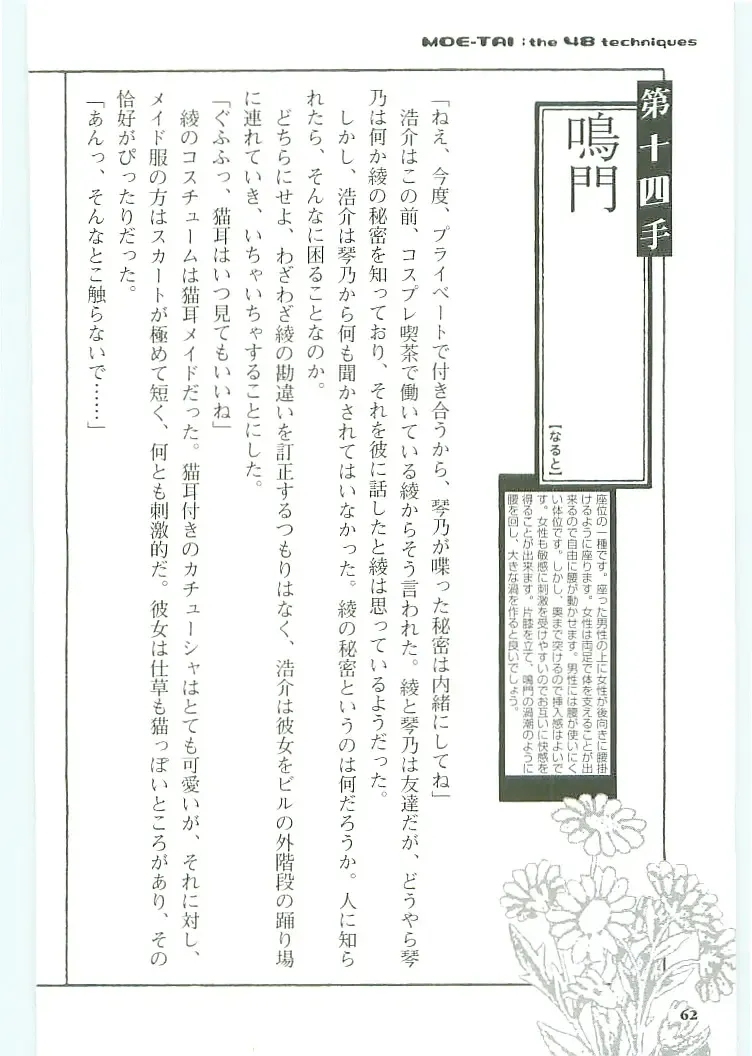 MOE-TAI : the 48 techniques
第十四手
鳴門
【なると】
座位の一種です。座った男性の上に女性が後向きに腰掛
けるように座ります。女性は両足で体を支えることが出
来るので自由に腰が動かせます。男性には腰が使いにく
い体位です。しかし、奥まで突けるので挿入感はよいで
す。女性も敏感に刺激を受けやすいのでお互いに快感を
得ることが出来ます。片膝を立て、鳴門の渦潮のように
腰を回し、大きな渦を作ると良いでしょう。
「ねえ、今度、プライベートで付き合うから、琴乃が喋った秘密は内緒にしてね」
浩介はこの前、コスプレ喫茶で働いている綾からそう言われた。綾と琴乃は友達だが、どうやら琴
乃は何か綾の秘密を知っており、それを彼に話したと綾は思っているようだった。
しかし、浩介は琴乃から何も聞かされてはいなかった。綾の秘密というのは何だろうか。人に知ら
れたら、そんなに困ることなのか。
どちらにせよ、わざわざ綾の勘違いを訂正するつもりはなく、浩介は彼女をビルの外階段の踊り場
に連れていき、いちゃいちゃすることにした。
「ぐふふっ、猫耳はいつ見てもいいね」
綾のコスチュームは猫耳メイドだった。猫耳付きのカチューシャはとても可愛いが、それに対し、
メイド服の方はスカートが極めて短く、何とも刺激的だ。彼女は仕草も猫っぽいところがあり、その
恰好がぴったりだった。
「あんっ、そんなとこ触らないで……」
62